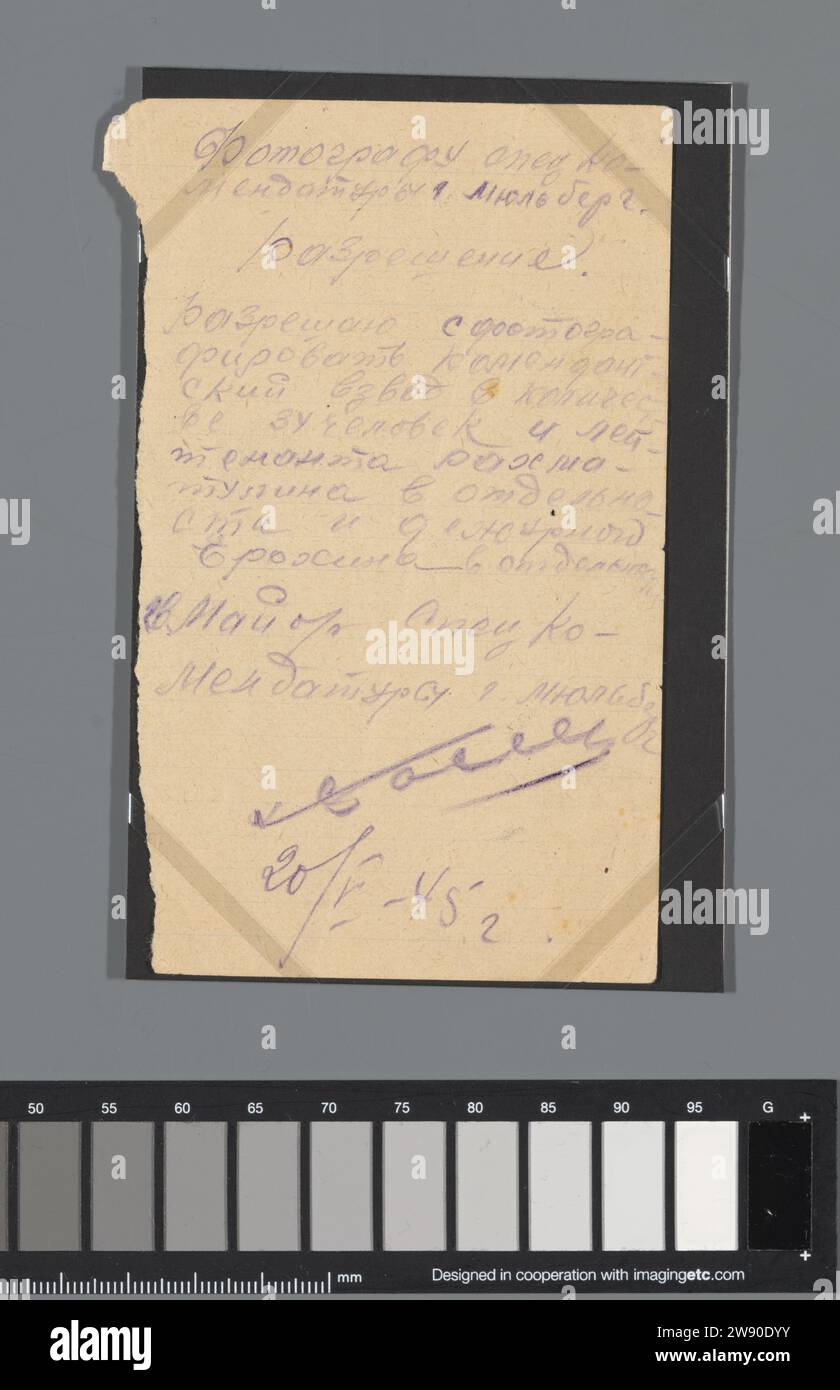 Фотографу спец ко-
мендатуры г. Мюльберг.
Разрешение.
Разрешаю сфотогра-
фировать комендант-
ский взвод в количес
ве 34 человек и лей-
тенанта Рахма-
тулина в отдельно
сти и дежурного
в отдельно
Майор Спец Ко-
мендатуры г. Мюльберг
20/V-45 г.
50 55 60 65 70 75 80 85 90 95 G
mm
Designed in cooperation with imagingetc.com
alamy
Image ID: 2W90DYY
www.alamy.com